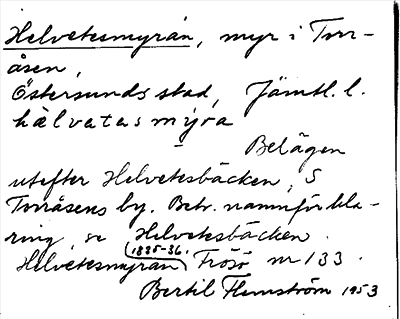 Helvetesmyrån, myr i Torr-
åsen,
Östersunds stad, Jämtl. l.
hälvatesmyra
Belägen
utefter Helvetesbäcken, S
Torråsens by. Betr. namnförkla-
ring, se Helvetesbäcken.
1835-36.
Helvetesmyran, Frösö nr 133.
Bertil Flemström 1953